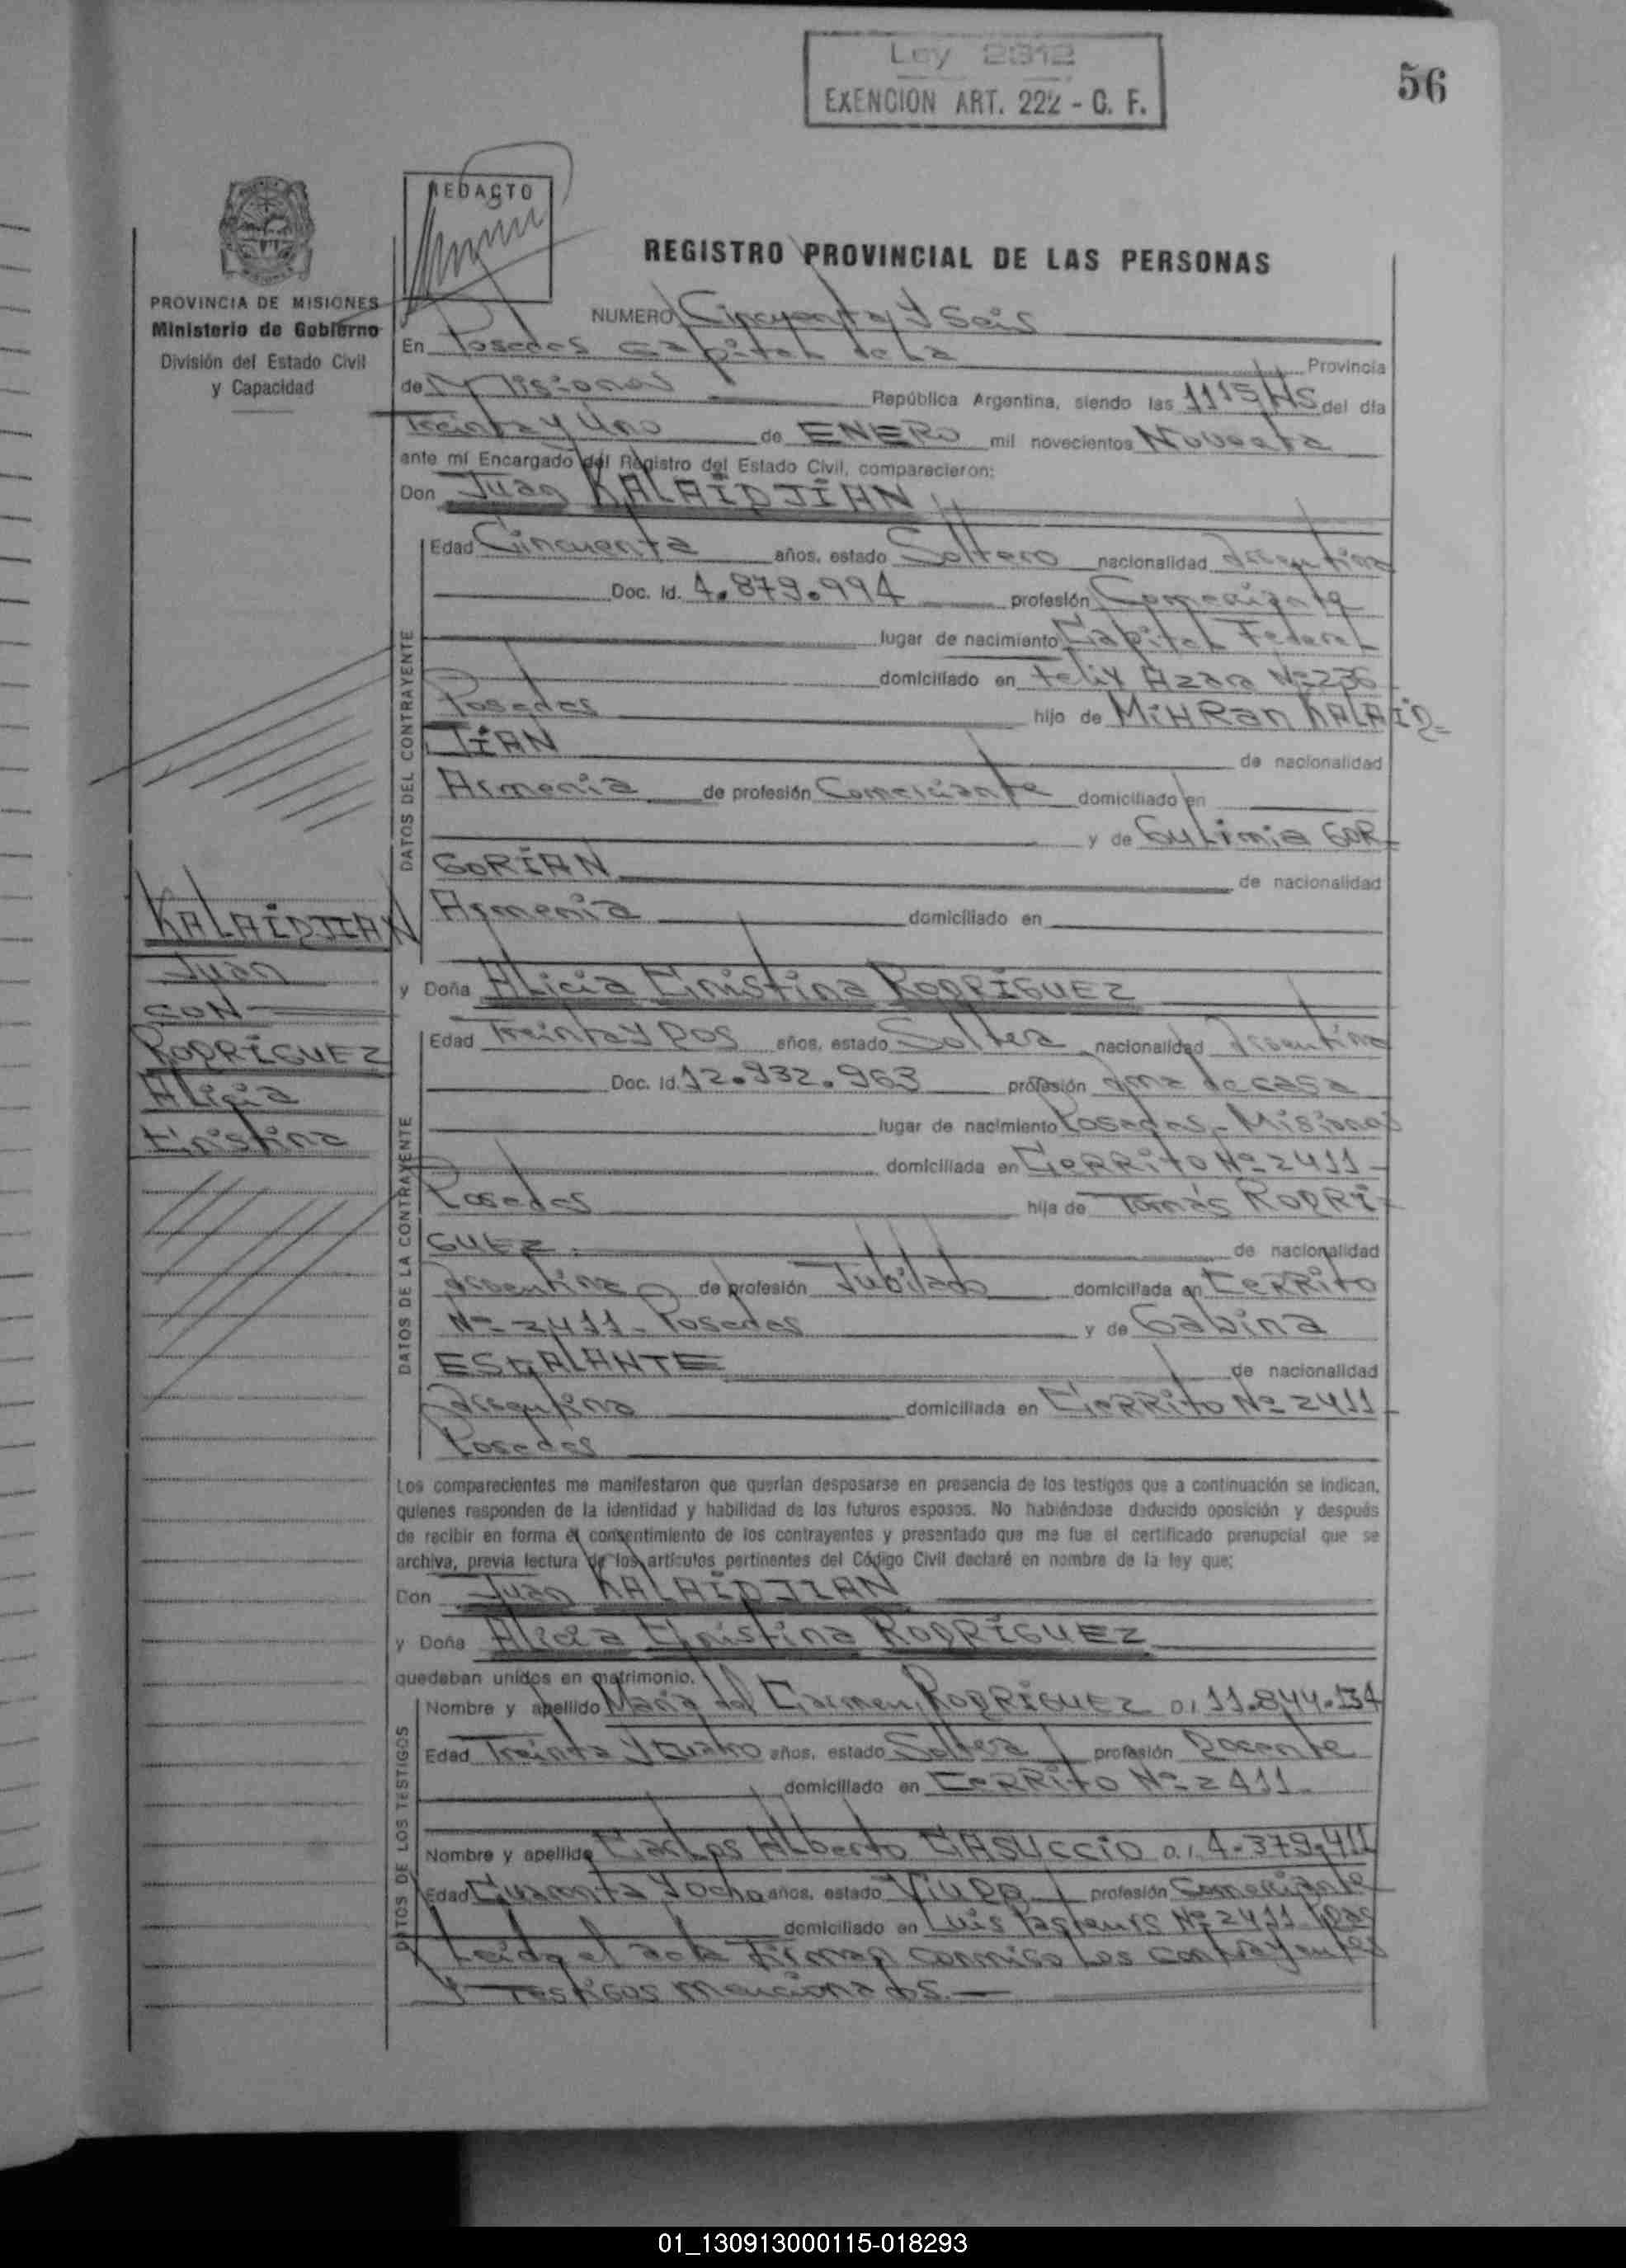 Ley 2312
EXENCION ART. 222 - C. F.
56
REDACTO
PROVINCIA DE MISIONES
Ministerio de Gobierno
División del Estado Civil
y Capacidad
REGISTRO PROVINCIAL DE LAS PERSONAS
NUMERO Cincuenta y Seis
En Posadas Capital de La Provincia
de Misiones República Argentina, siendo las 1115 HS del día
Treinta y Uno de ENERO mil novecientos Noventa
ante mí Encargado del Registro del Estado Civil, comparecieron:
Don Juan KALAIDJIAN
DATOS DEL CONTRAYENTE
Edad Cincuenta años, estado Soltero nacionalidad Argentina
Doc. Id. 4.879.994 profesión Comerciante
lugar de nacimiento Capital Federal
domiciliado en Felix Azara Nº 236
Posadas hijo de MiHRan KALAID=
JIAN de nacionalidad
Armenia de profesión Comerciante domiciliado en
y de Gulimia GOR-
GORIAN de nacionalidad
Armenia domiciliado en
KALAIDJIAN
Juan
CON
RODRIGUEZ
Alicia
Cristina
y Doña Alicia Cristina RODRIGUEZ
DATOS DE LA CONTRAYENTE
Edad Treinta y Dos años, estado Soltera nacionalidad Argentina
Doc. Id. 12.932.963 profesión Ama de casa
lugar de nacimiento Posadas - Misiones
domiciliada en CERRito Nº 2411-
Posadas hija de Tomás RODRI-
GUEZ. de nacionalidad
Argentina de profesión Jubilado domiciliada en CERRito
Nº 2411- Posadas y de Gabina
ESCALANTE de nacionalidad
Argentina domiciliada en CERRito Nº 2411-
Posadas
Los comparecientes me manifestaron que querían desposarse en presencia de los testigos que a continuación se indican,
quienes responden de la identidad y habilidad de los futuros esposos. No habiéndose deducido oposición y después
de recibir en forma el consentimiento de los contrayentes y presentado que me fue el certificado prenupcial que se
archiva, previa lectura de los artículos pertinentes del Código Civil declaré en nombre de la ley que:
Don Juan KALAIDJIAN
y Doña Alicia Cristina RODRIGUEZ
quedaban unidos en matrimonio.
DATOS DE LOS TESTIGOS
Nombre y apellido Maria del Carmen RODRIGUEZ D.I 11.844.134
Edad Treinta y Cuatro años, estado Soltera profesión Docente
domiciliado en CERRito Nº 2411-
Nombre y apellido Carlos Alberto CASUCCIO D.I. 4.379.411
Edad Cuarenta y ocho años, estado Viudo profesión Comerciante
domiciliado en Luis Pasteurs Nº 2411 Pdas
Leida el acta Firman conmigo Los contrayentes
y Testigos mencionados.-
01_130913000115-018293